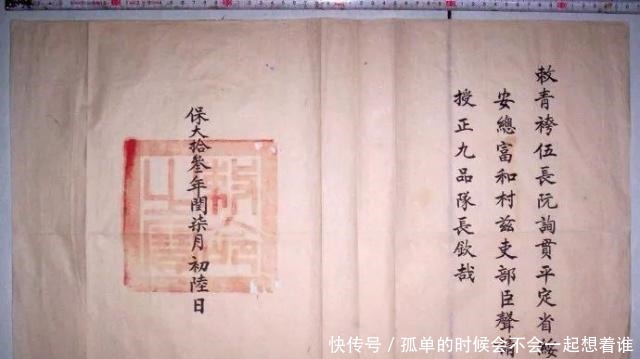 敕青袴伍長阮詢貫平定省
安總富和村茲吏部臣聲
授正九品隊長欽哉
保大拾叁年閏柒月初陸日
敕命之寶
快传号／孤单的时候会不会一起想着谁